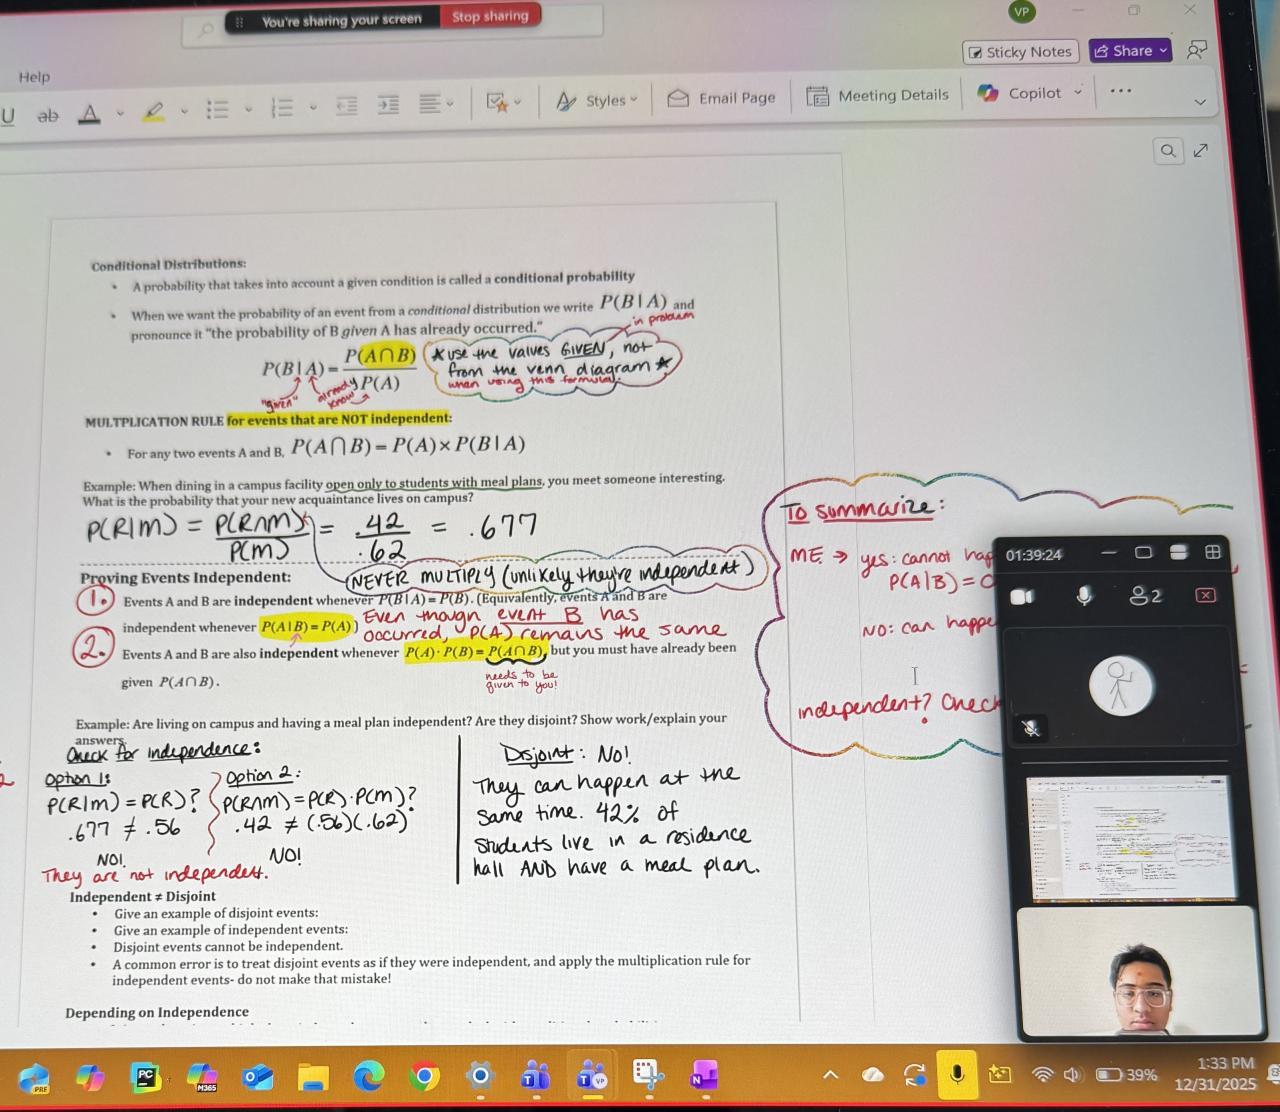 You're sharing your screen
Stop sharing
VP
Sticky Notes
Share
Help
U ab A
Styles
Email Page
Meeting Details
Copilot
Conditional Distributions:
• A probability that takes into account a given condition is called a conditional probability
• When we want the probability of an event from a conditional distribution we write P(B | A) and
pronounce it "the probability of B given A has already occurred."
in problem
P(B | A) = P(A∩B) / P(A)
"given"
already know
★ use the values GIVEN, not
from the venn diagram ★
when using this formula.
MULTPLICATION RULE for events that are NOT independent:
• For any two events A and B, P(A∩B) = P(A) × P(B | A)
Example: When dining in a campus facility open only to students with meal plans, you meet someone interesting.
What is the probability that your new acquaintance lives on campus?
P(R|m) = P(R∩m) / P(m) = .42 / .62 = .677
NEVER MULTIPLY (unlikely they're independent)
Proving Events Independent:
1. Events A and B are independent whenever P(B | A) = P(B). (Equivalently, events A and B are
independent whenever P(A | B) = P(A))
Even though event B has
occurred, P(A) remains the same
2. Events A and B are also independent whenever P(A) · P(B) = P(A∩B), but you must have already been
given P(A∩B).
needs to be
given to you!
Example: Are living on campus and having a meal plan independent? Are they disjoint? Show work/explain your
answers.
Check for independence:
Option 1:
P(R|m) = P(R)?
.677 ≠ .56
NO!
Option 2:
P(R∩m) = P(R) · P(m)?
.42 ≠ (.56)(.62)
NO!
They are not independent.
Disjoint: No!
They can happen at the
same time. 42% of
students live in a residence
hall AND have a meal plan.
Independent ≠ Disjoint
• Give an example of disjoint events:
• Give an example of independent events:
• Disjoint events cannot be independent.
• A common error is to treat disjoint events as if they were independent, and apply the multiplication rule for
independent events- do not make that mistake!
Depending on Independence
To summarize:
ME → yes: cannot hap
P(A|B) = 0
NO: can happe
independent? Check
01:39:24
2
PRE
PC
M365
T
T VP
N
39%
1:33 PM
12/31/2025